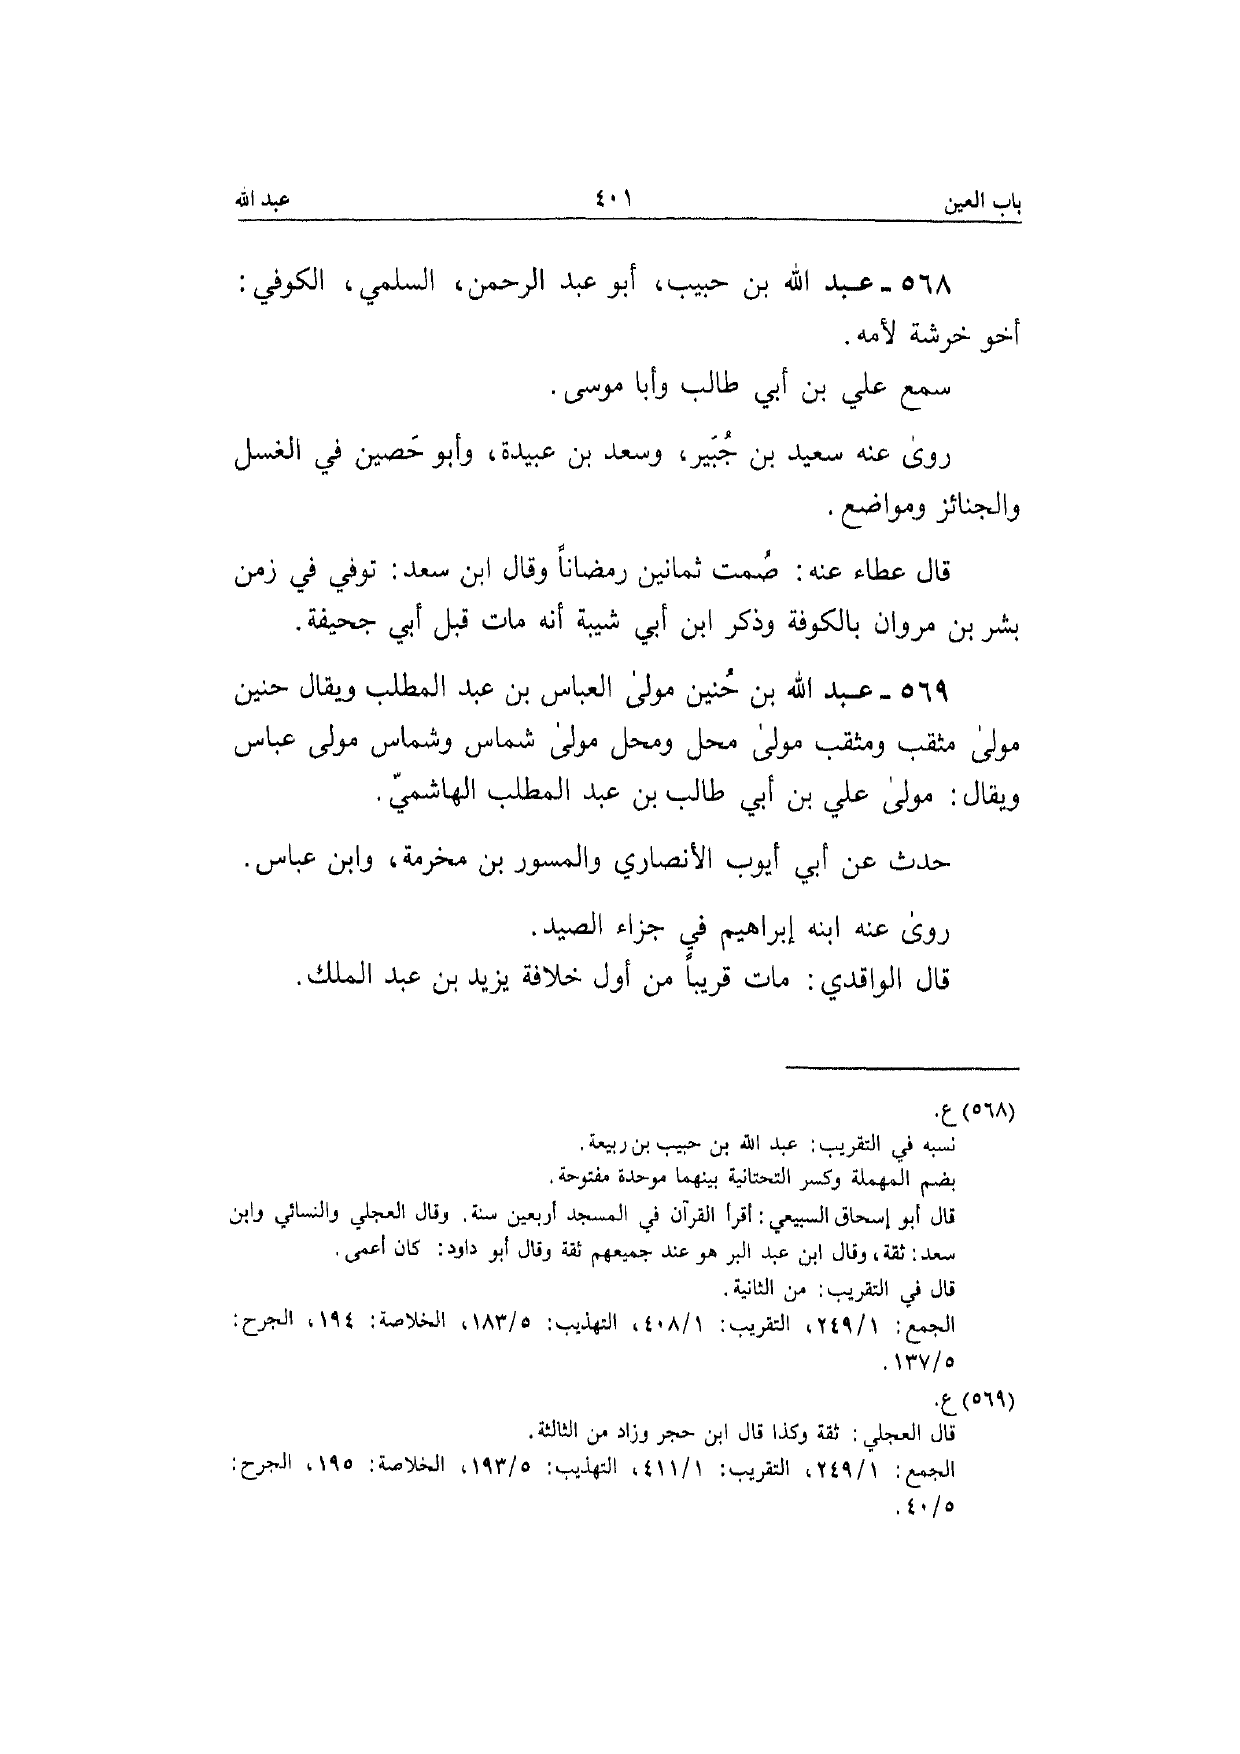 باب العين ٤٠١ عبد الله
٥٦٨ - عبد الله بن حبيب، أبو عبد الرحمن، السلمي، الكوفي:
أخو خرشة لأمه.
سمع علي بن أبي طالب وأبا موسى.
روىٰ عنه سعيد بن جُبَير، وسعد بن عبيدة، وأبو حَصين في الغسل
والجنائز ومواضع.
قال عطاء عنه: صُمت ثمانين رمضاناً وقال ابن سعد: توفي في زمن
بشر بن مروان بالكوفة وذكر ابن أبي شيبة أنه مات قبل أبي جحيفة.
٥٦٩ - عبد الله بن حُنين مولىٰ العباس بن عبد المطلب ويقال حنين
مولىٰ مثقب ومثقب مولىٰ محل ومحل مولىٰ شماس وشماس مولى عباس
ويقال: مولىٰ علي بن أبي طالب بن عبد المطلب الهاشميّ.
حدث عن أبي أيوب الأنصاري والمسور بن مخرمة، وابن عباس.
روىٰ عنه ابنه إبراهيم في جزاء الصيد.
قال الواقدي: مات قريباً من أول خلافة يزيد بن عبد الملك.
(٥٦٨) ع.
نسبه في التقريب: عبد الله بن حبيب بن ربيعة.
بضم المهملة وكسر التحتانية بينهما موحدة مفتوحة.
قال أبو إسحاق السبيعي: أقرأ القرآن في المسجد أربعين سنة. وقال العجلي والنسائي وابن
سعد: ثقة، وقال ابن عبد البر هو عند جميعهم ثقة وقال أبو داود: كان أعمى.
قال في التقريب: من الثانية.
الجمع: ٢٤٩/١، التقريب: ٤٠٨/١، التهذيب: ١٨٣/٥، الخلاصة: ١٩٤، الجرح:
١٣٧/٥.
(٥٦٩) ع.
قال العجلي: ثقة وكذا قال ابن حجر وزاد من الثالثة.
الجمع: ٢٤٩/١، التقريب: ٤١١/١، التهذيب: ١٩٣/٥، الخلاصة: ١٩٥، الجرح:
٤٠/٥.